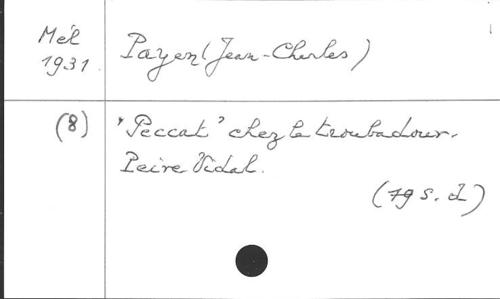 Mél
1931.
Payen (Jean-Charles)
(8)
"Peccat" chez le troubadour.
Peire Vidal.
(79 s. d.)